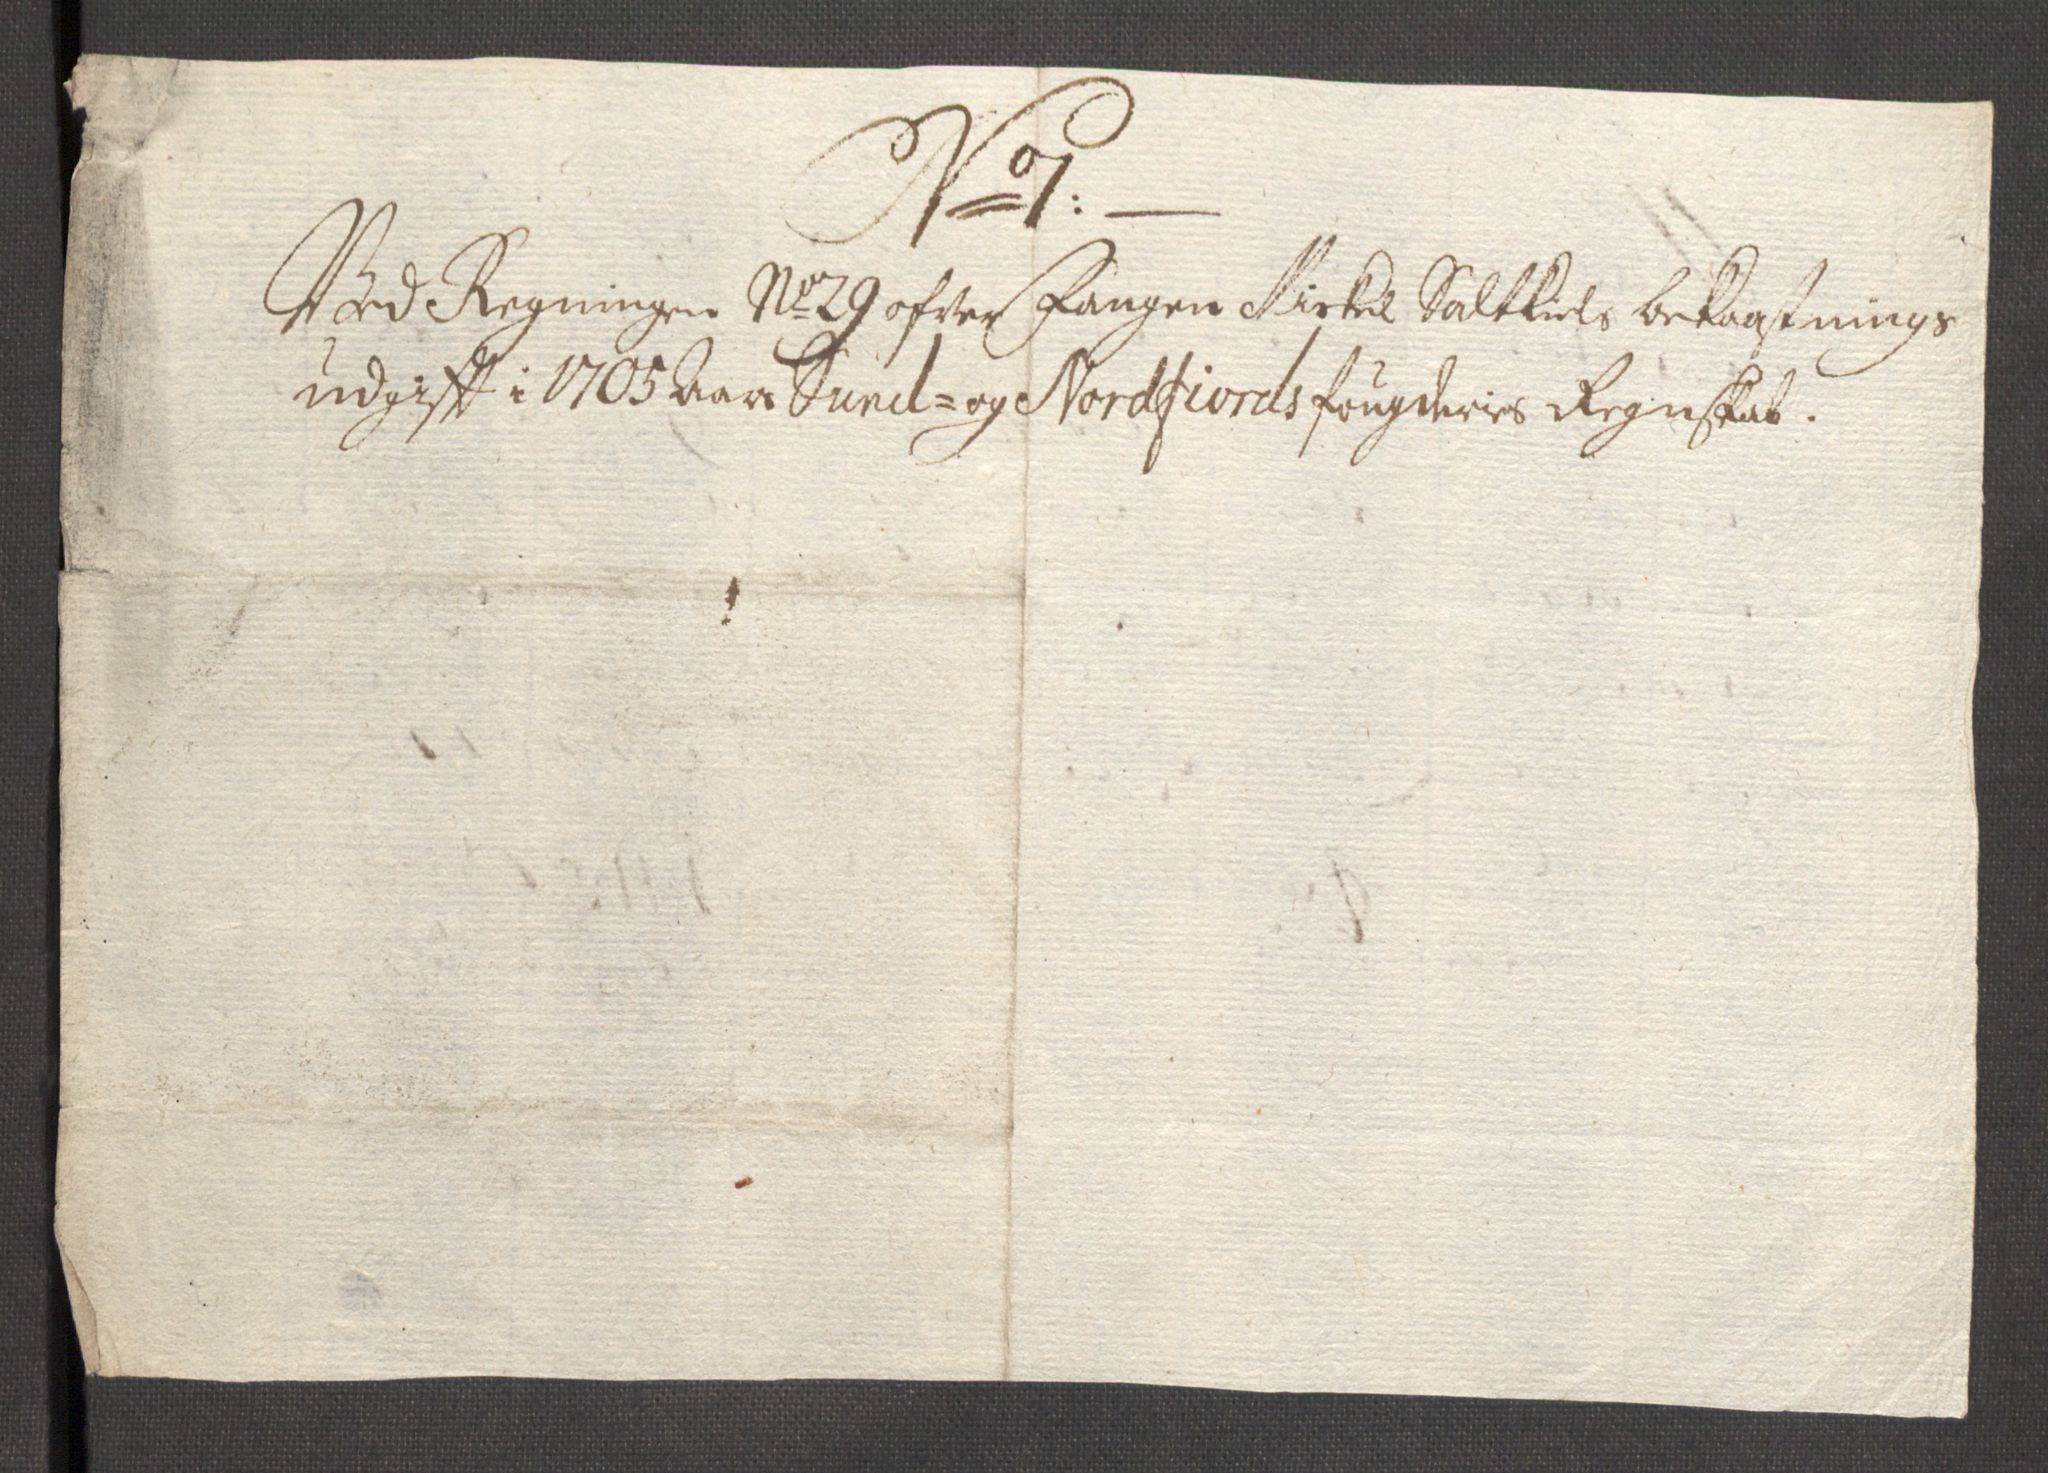 No 7: —
Ved Regningen No 29 ofver Fangen Mickel Saltkiels bekaastnings
udgifft i 1705 Aars Sund= og Nordfiords fougderies Regnskab.